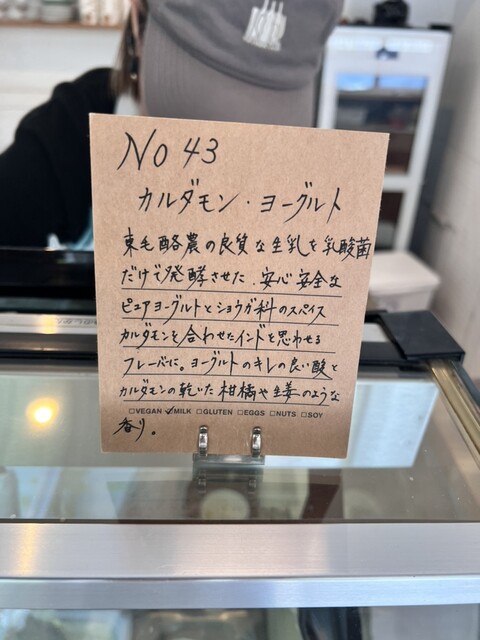 No 43
カルダモン・ヨーグルト
東毛酪農の良質な生乳を乳酸菌
だけで発酵させた、安心安全な
ピュアヨーグルトとショウガ科のスパイス
カルダモンを合わせたインドを思わせる
フレーバーに。ヨーグルトのキレの良い酸と
カルダモンの乾いた柑橘や生姜のような
□VEGAN ☑MILK □GLUTEN □EGGS □NUTS □SOY
香り。